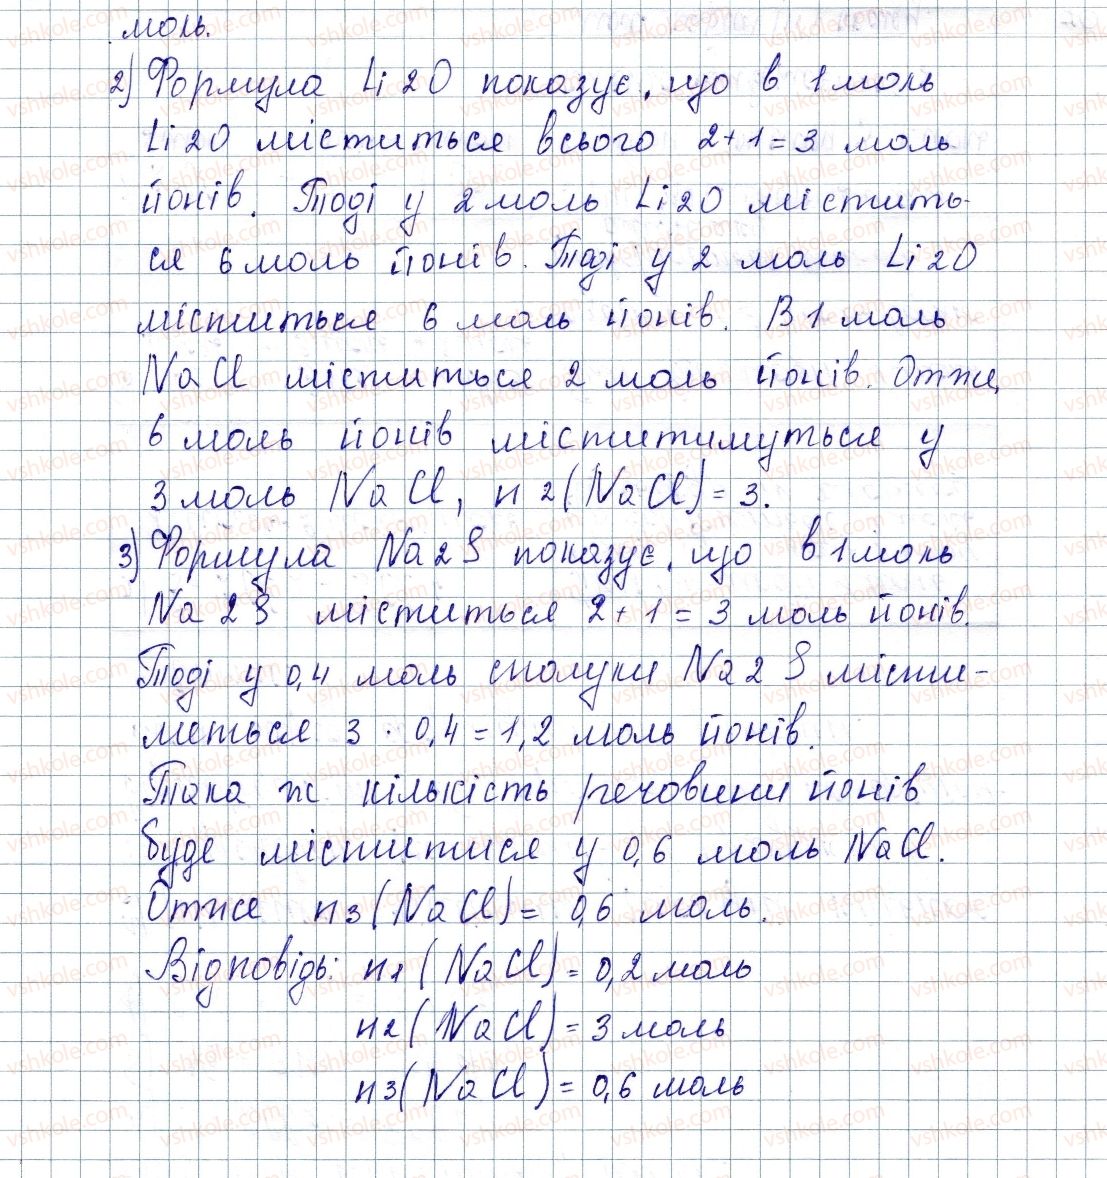 моль.
2) Формула Li2O показує, що в 1 моль
Li2O міститься всього 2+1=3 моль
йонів. Тоді у 2 моль Li2O містить-
ся 6 моль йонів. Тоді у 2 моль Li2O
міститься 6 моль йонів. В 1 моль
NaCl міститься 2 моль йонів. Отже,
6 моль йонів міститимуться у
3 моль NaCl, n2(NaCl)=3.
3) Формула Na2S показує, що в 1 моль
Na2S міститься 2+1=3 моль йонів.
Тоді у 0,4 моль сполуки Na2S місти-
меться 3·0,4=1,2 моль йонів.
Така ж кількість речовини йонів
буде міститися у 0,6 моль NaCl.
Отже n3(NaCl)=0,6 моль.
Відповідь: n1(NaCl)=0,2 моль
n2(NaCl)=3 моль
n3(NaCl)=0,6 моль
vshkole.com